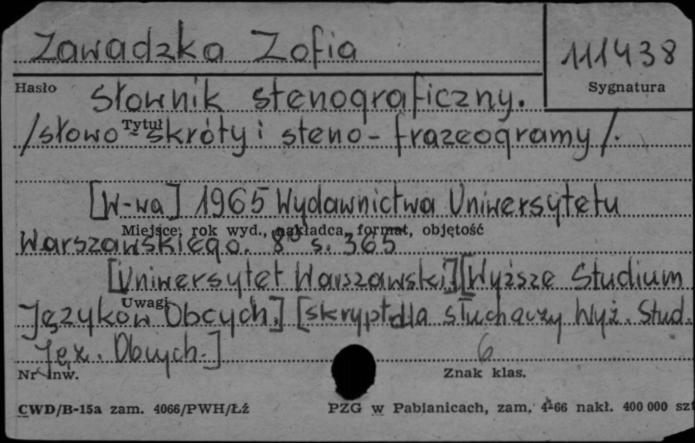 Zawadzka Zofia
111438
Hasło
Sygnatura
Słownik stenograficzny.
Tytuł
/słowo-skróty i steno-frazeogramy/.
[W-wa] 1965 Wydawnictwa Uniwersytetu
Miejsce, rok wyd., nakładca, format, objętość
Warszawskiego. 8° s. 365
[Uniwersytet Warszawski.] [Wyższe Studium
Uwagi
Języków Obcych.] [skrypt dla słuchaczy Wyż. Stud.
Jęz. Obcych.]
6
Nr inw.
Znak klas.
CWD/B-15a zam. 4066/PWH/Łź
PZG w Pabianicach, zam. 4-66 nakł. 400 000 szt